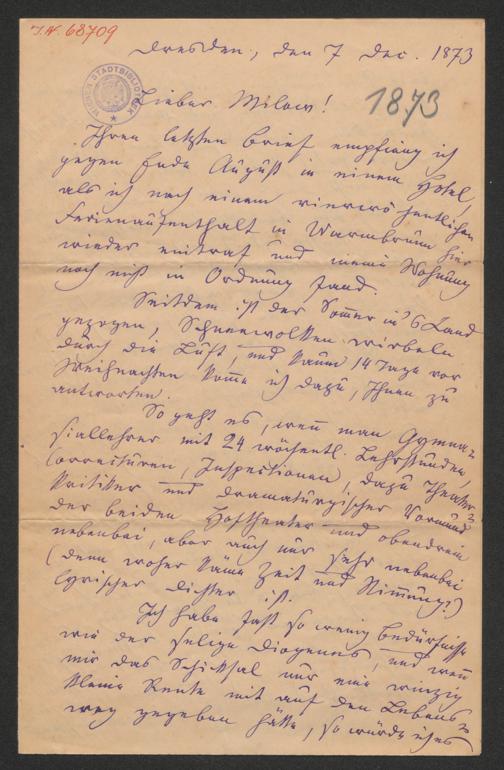 J.N. 68709
Dresden, den 7 Dec. 1873
WIENER STADTBIBLIOTHEK
Lieber Milow!
1873
Ihren letzten Brief empfieng ich
gegen Ende August in einem Hotel,
als ich nach einem vierwöchentlichen
Ferienaufenthalt in Warmbrunn hier
wieder eintraf und meine Wohnung
noch nicht in Ordnung fand.
Seitdem ist der Sommer in's Land
gezogen, Schneewolken wirbeln
durch die Luft, und kaum 14 Tage vor
Weihnachten komme ich dazu, Ihnen zu
antworten.
So geht es, wenn man Gymna-
siallehrer mit 24 wöchentl. Lehrstunden,
Correcturen, Inspectionen, dazu Theater-
kritiker und dramaturgischer Vormund
der beiden Hoftheater und obendrein
nebenbei, aber auch nur sehr nebenbei
(denn woher käme Zeit und Stimmung?)
lyrischer Dichter ist.
Ich habe fast so wenig Bedürfnisse
wie der selige Diogenes, und wenn
mir das Schicksal nur eine winzig
kleine Rente mit auf den Lebens-
weg gegeben hätte, so würde ich es